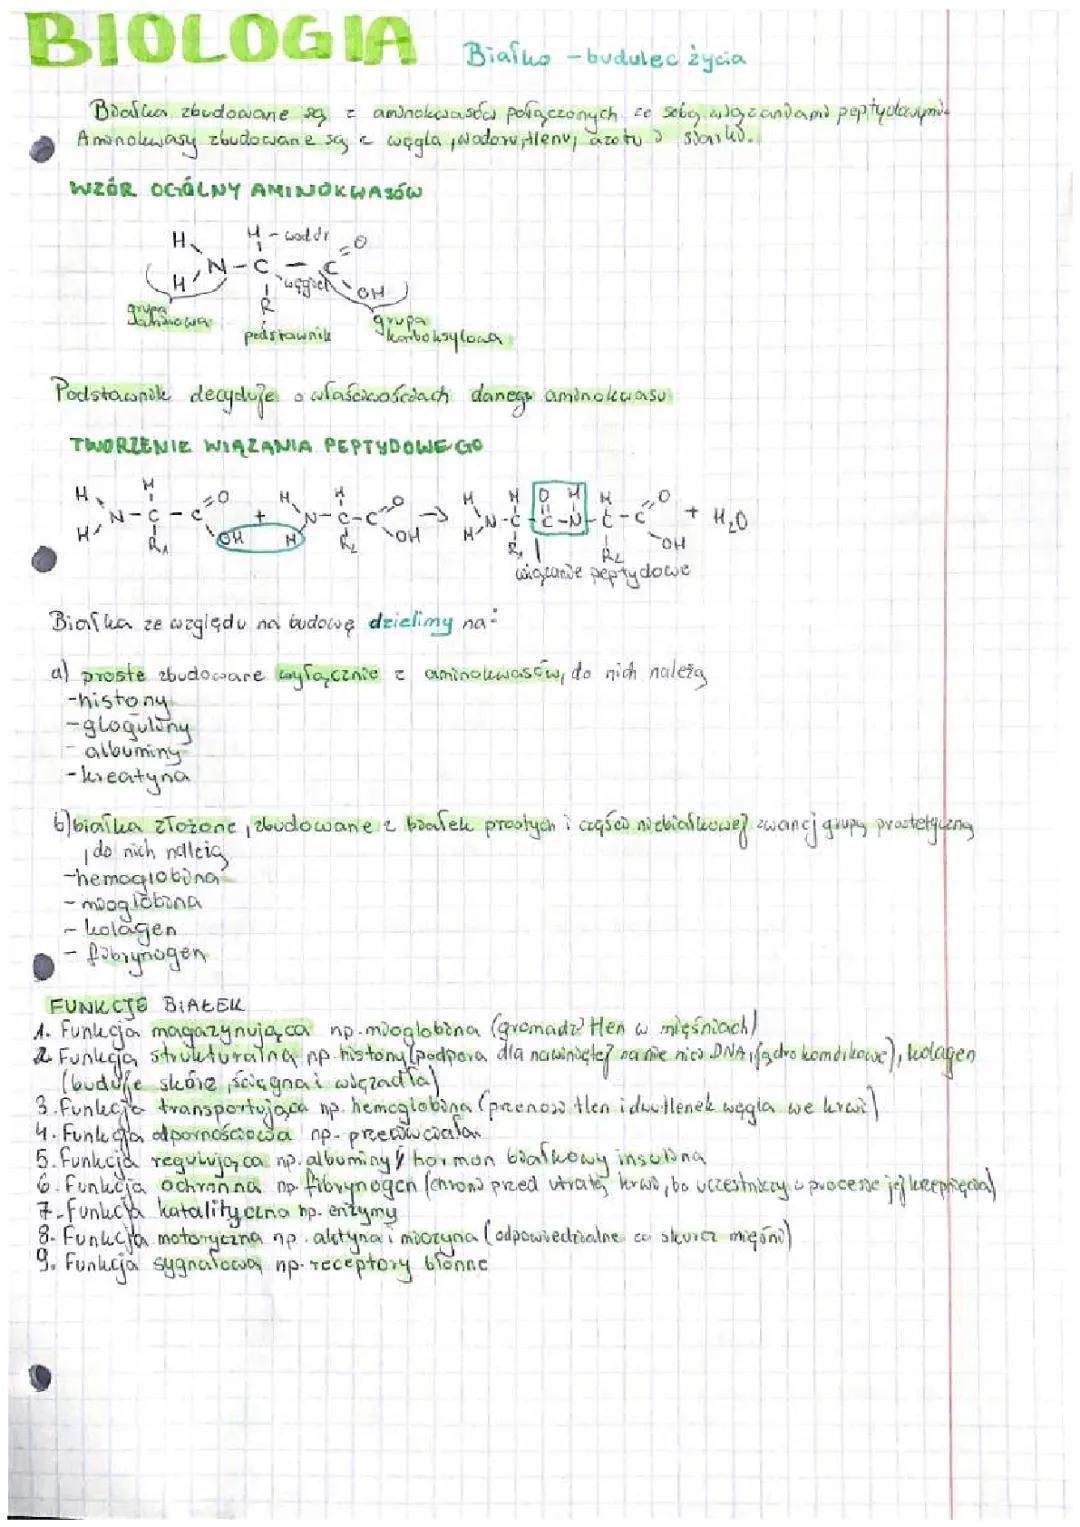 BIOLOGIA
Białko - budulec życia
Białka zbudowane są z aminokwasów połączonych ze sobą wiązaniami peptydowymi.
Aminokwasy zbudowane są z węgla, wodoru, tlenu, azotu i siarki.
WZÓR OGÓLNY AMINOKWASÓW
H H - wodór O
N - C - C
H węgiel OH
R
grupa aminowa
podstawnik
grupa karboksylowa
Podstawnik decyduje o właściwościach danego aminokwasu
TWORZENIE WIĄZANIA PEPTYDOWEGO
H H O H H O H H O H H O
N - C - C + N - C - C → N - C - C - N - C - C + H₂O
H R₁ OH H R₂ OH H R₁ R₂ OH
wiązanie peptydowe
Białka ze względu na budowę dzielimy na:
a) proste zbudowane wyłącznie z aminokwasów, do nich należą
- histony
- gloguliny
- albuminy
- kreatyna
b) białka złożone, zbudowane z białek prostych i części niebiałkowej zwanej grupą prostetyczną
, do nich należą
- hemoglobina
- mioglobina
- kolagen
- fibrynogen
FUNKCJE BIAŁEK
1. Funkcja magazynująca np. mioglobina (gromadzi tlen w mięśniach)
2. Funkcja strukturalna np. histony (podpora dla nawiniętej na nie nici DNA, jądro komórkowe), kolagen
(buduje skórę, ścięgna i więzadła)
3. Funkcja transportująca np. hemoglobina (przenosi tlen i dwutlenek węgla we krwi)
4. Funkcja odpornościowa np. przeciwciała
5. Funkcja regulująca np. albuminy / hormon białkowy insulina
6. Funkcja ochronna np. fibrynogen (chroni przed utratą krwi, bo uczestniczy w procesie jej krzepnięcia)
7. Funkcja katalityczna np. enzymy
8. Funkcja motoryczna np. aktyna i miozyna (odpowiedzialne za skurcz mięśni)
9. Funkcja sygnałowa np. receptory błonne